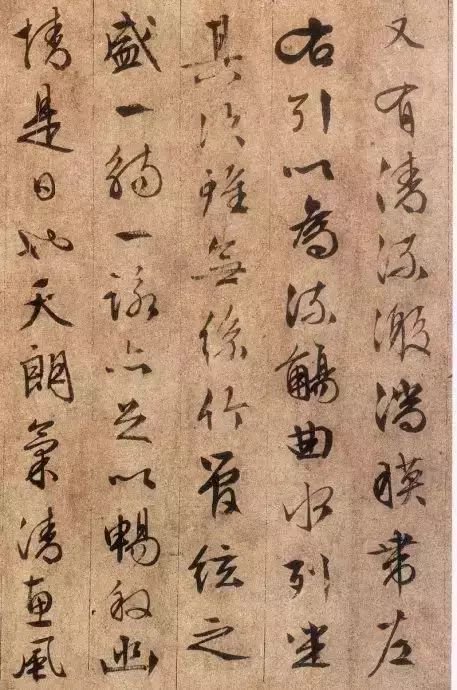 又有清流激湍暎帶左
右引以為流觴曲水列坐
其次雖無絲竹管絃之
盛一觴一詠亦足以暢敘幽
情是日也天朗氣清惠風